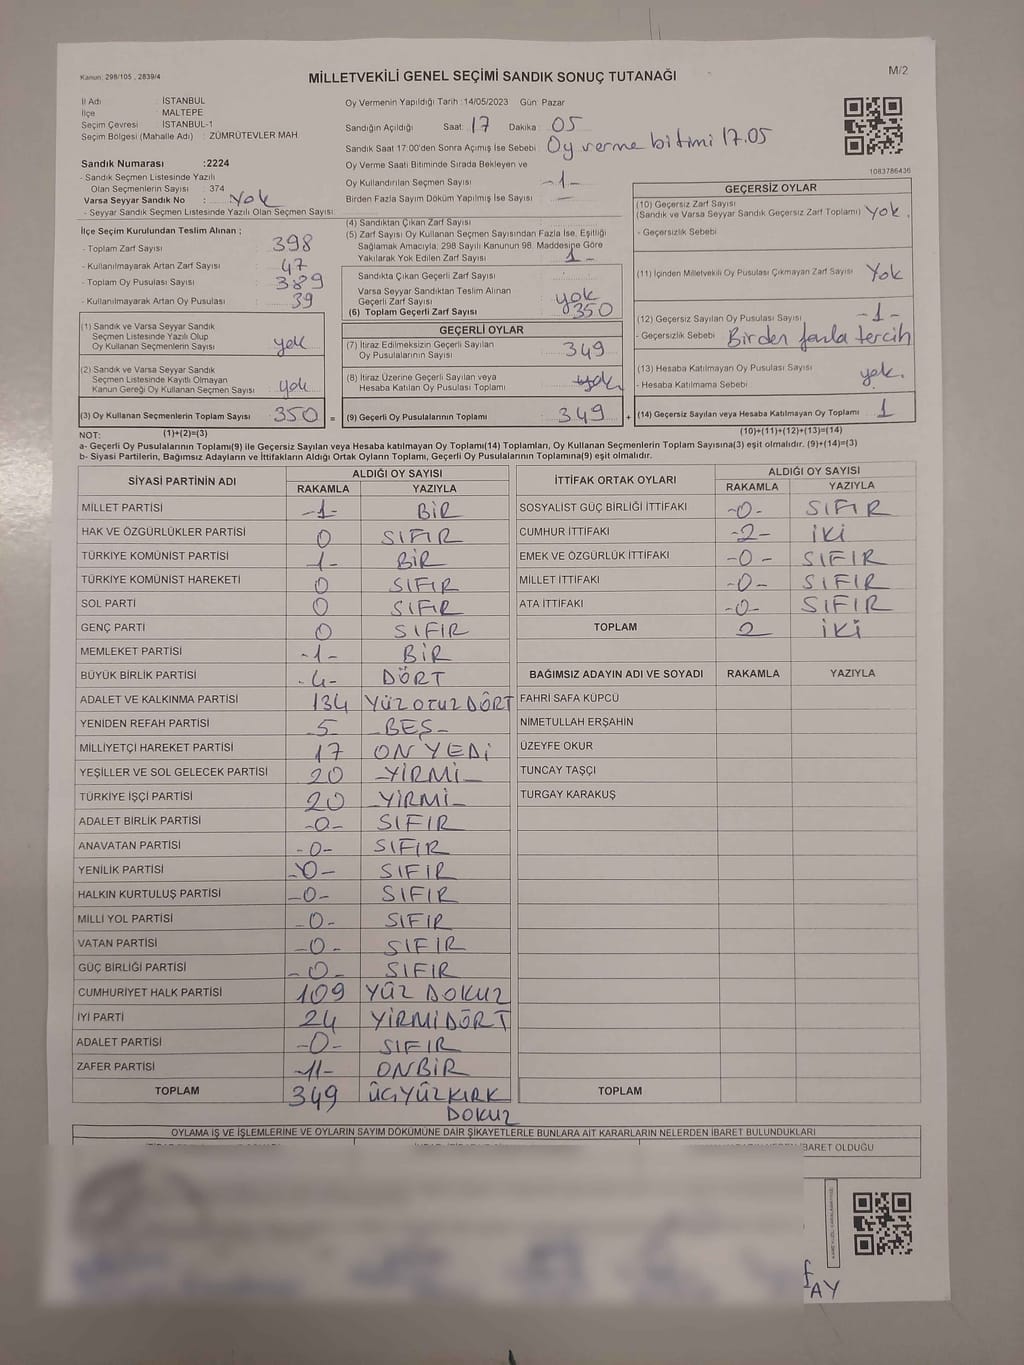 Kanun: 298/105 , 2839/4
MİLLETVEKİLİ GENEL SEÇİMİ SANDIK SONUÇ TUTANAĞI
M/2
İl Adı : İSTANBUL
İlçe : MALTEPE
Seçim Çevresi : İSTANBUL-1
Seçim Bölgesi (Mahalle Adı) : ZÜMRÜTEVLER MAH.
Sandık Numarası :2224
- Sandık Seçmen Listesinde Yazılı
Olan Seçmenlerin Sayısı : 374
Varsa Seyyar Sandık No : Yok
- Seyyar Sandık Seçmen Listesinde Yazılı Olan Seçmen Sayısı:
Oy Vermenin Yapıldığı Tarih :14/05/2023 Gün: Pazar
Sandığın Açıldığı Saat: 17 Dakika: 05
Sandık Saat 17:00'den Sonra Açımış İse Sebebi : Oy verme bitimi 17.05
Oy Verme Saati Bitiminde Sırada Bekleyen ve
Oy Kullandırılan Seçmen Sayısı -1-
Birden Fazla Sayım Döküm Yapılmış İse Sayısı —
1083786436
İlçe Seçim Kurulundan Teslim Alınan ;
- Toplam Zarf Sayısı : 398
- Kullanılmayarak Artan Zarf Sayısı : 47
- Toplam Oy Pusulası Sayısı : 389
- Kullanılmayarak Artan Oy Pusulası : 39
(1) Sandık ve Varsa Seyyar Sandık
Seçmen Listesinde Yazılı Olup
Oy Kullanan Seçmenlerin Sayısı : yok
(2) Sandık ve Varsa Seyyar Sandık
Seçmen Listesinde Kayıtlı Olmayan
Kanun Gereği Oy Kullanan Seçmen Sayısı : yok
(3) Oy Kullanan Seçmenlerin Toplam Sayısı : 350 =
(4) Sandıktan Çıkan Zarf Sayısı
(5) Zarf Sayısı Oy Kullanan Seçmen Sayısından Fazla İse, Eşitliği
Sağlamak Amacıyla, 298 Sayılı Kanunun 98. Maddesine Göre
Yakılarak Yok Edilen Zarf Sayısı : 1-
Sandıkta Çıkan Geçerli Zarf Sayısı
Varsa Seyyar Sandıktan Teslim Alınan
Geçerli Zarf Sayısı : yok
(6) Toplam Geçerli Zarf Sayısı : 350
GEÇERLİ OYLAR
(7) İtiraz Edilmeksizin Geçerli Sayılan
Oy Pusulalarının Sayısı : 349
(8) İtiraz Üzerine Geçerli Sayılan veya
Hesaba Katılan Oy Pusulası Toplamı : yok
(9) Geçerli Oy Pusulalarının Toplamı : 349 +
GEÇERSİZ OYLAR
(10) Geçersiz Zarf Sayısı
(Sandık ve Varsa Seyyar Sandık Geçersiz Zarf Toplamı) : yok.
- Geçersizlik Sebebi
(11) İçinden Milletvekili Oy Pusulası Çıkmayan Zarf Sayısı : Yok
(12) Geçersiz Sayılan Oy Pusulası Sayısı : -1-
- Geçersizlik Sebebi : Birden fazla tercih
(13) Hesaba Katılmayan Oy Pusulası Sayısı : yok.
- Hesaba Katılmama Sebebi :
(14) Geçersiz Sayılan veya Hesaba Katılmayan Oy Toplamı : 1
NOT: (1)+(2)=(3)
(10)+(11)+(12)+(13)=(14)
a- Geçerli Oy Pusulalarının Toplamı(9) ile Geçersiz Sayılan veya Hesaba katılmayan Oy Toplamı(14) Toplamları, Oy Kullanan Seçmenlerin Toplam Sayısına(3) eşit olmalıdır. (9)+(14)=(3)
b- Siyasi Partilerin, Bağımsız Adayların ve İttifakların Aldığı Ortak Oyların Toplamı, Geçerli Oy Pusulalarının Toplamına(9) eşit olmalıdır.
SİYASİ PARTİNİN ADI ALDIĞI OY SAYISI
RAKAMLA YAZIYLA
MİLLET PARTİSİ -1- BİR
HAK VE ÖZGÜRLÜKLER PARTİSİ 0 SIFIR
TÜRKİYE KOMÜNİST PARTİSİ 1- BİR
TÜRKİYE KOMÜNİST HAREKETİ 0 SIFIR
SOL PARTİ 0 SIFIR
GENÇ PARTİ 0 SIFIR
MEMLEKET PARTİSİ -1- BİR
BÜYÜK BİRLİK PARTİSİ -4- DÖRT
ADALET VE KALKINMA PARTİSİ 134 YÜZ OTUZ DÖRT
YENİDEN REFAH PARTİSİ 5 BEŞ-
MİLLİYETÇİ HAREKET PARTİSİ 17 ON YEDİ
YEŞİLLER VE SOL GELECEK PARTİSİ 20 -YİRMİ-
TÜRKİYE İŞÇİ PARTİSİ 20 -YİRMİ-
ADALET BİRLİK PARTİSİ -0- SIFIR
ANAVATAN PARTİSİ -0- SIFIR
YENİLİK PARTİSİ -0- SIFIR
HALKIN KURTULUŞ PARTİSİ -0- SIFIR
MİLLİ YOL PARTİSİ -0- SIFIR
VATAN PARTİSİ -0- SIFIR
GÜÇ BİRLİĞİ PARTİSİ -0- SIFIR
CUMHURİYET HALK PARTİSİ 109 YÜZ DOKUZ
İYİ PARTİ 24 YİRMİDÖRT
ADALET PARTİSİ -0- SIFIR
ZAFER PARTİSİ -11- ONBİR
TOPLAM 349 ÜÇYÜZKIRK
DOKUZ
İTTİFAK ORTAK OYLARI ALDIĞI OY SAYISI
RAKAMLA YAZIYLA
SOSYALİST GÜÇ BİRLİĞİ İTTİFAKI -0- SIFIR
CUMHUR İTTİFAKI -2- İKİ
EMEK VE ÖZGÜRLÜK İTTİFAKI -0- SIFIR
MİLLET İTTİFAKI -0- SIFIR
ATA İTTİFAKI -0- SIFIR
TOPLAM 2 İKİ
BAĞIMSIZ ADAYIN ADI VE SOYADI RAKAMLA YAZIYLA
FAHRİ SAFA KÜPCÜ
NİMETULLAH ERŞAHİN
ÜZEYFE OKUR
TUNCAY TAŞÇI
TURGAY KARAKUŞ
TOPLAM
OYLAMA İŞ VE İŞLEMLERİNE VE OYLARIN SAYIM DÖKÜMÜNE DAİR ŞİKAYETLERLE BUNLARA AİT KARARLARIN NELERDEN İBARET BULUNDUKLARI
İBARET OLDUĞU
AY